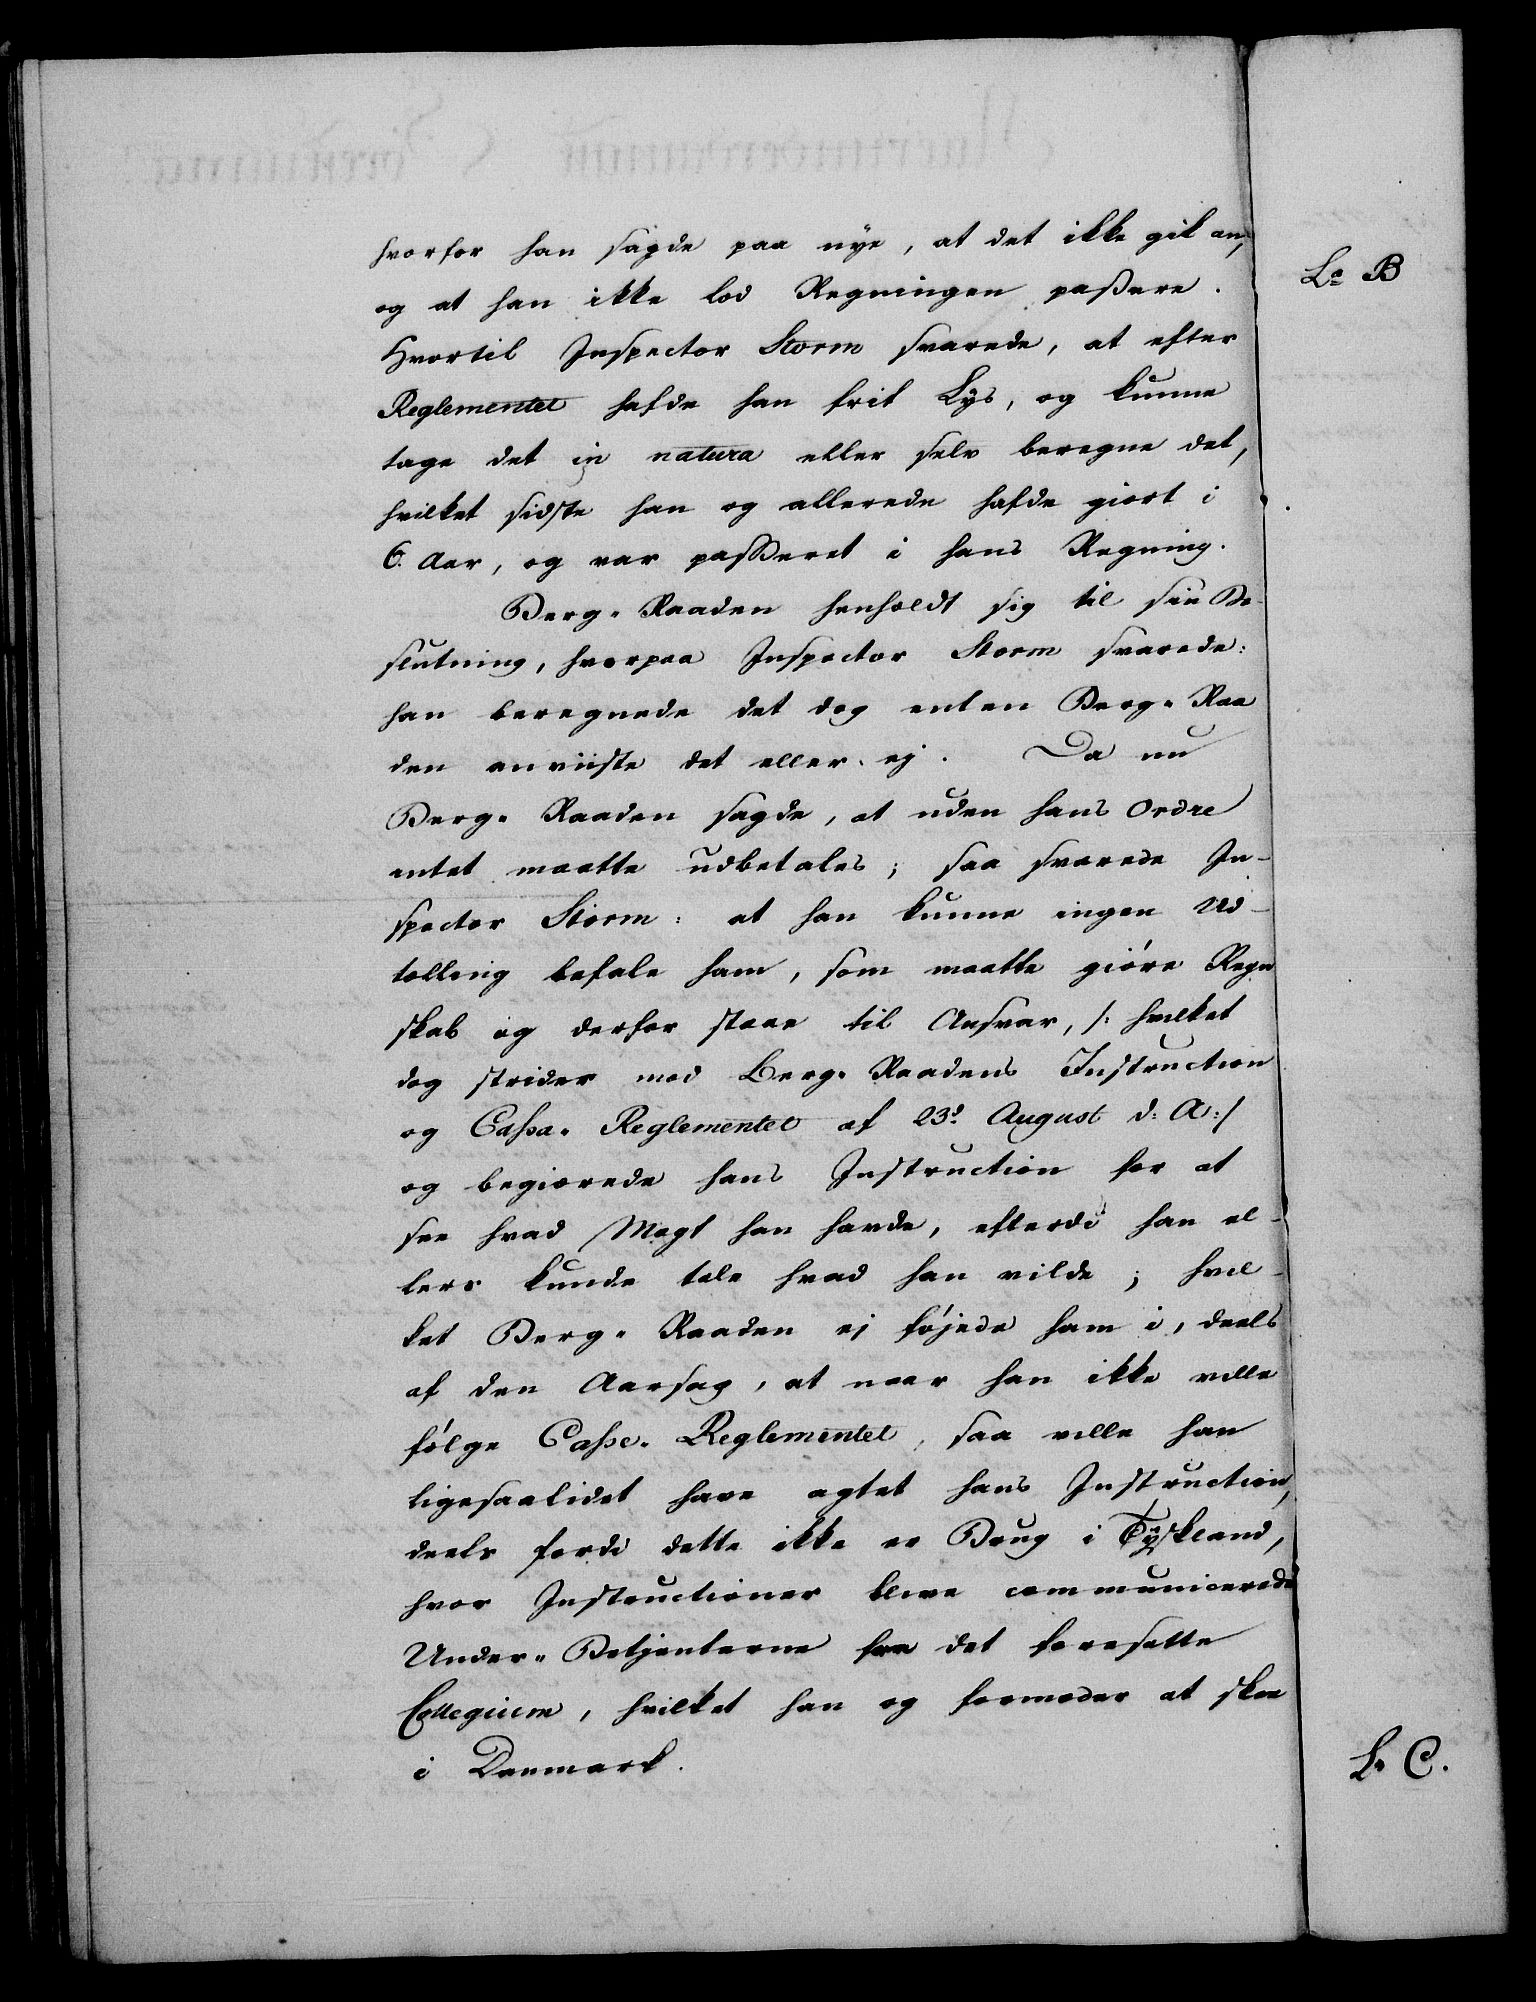 hvorfor han sagde paa nÿe, at det ikke gik an,
og at han ikke lod Regningen paßere.
Hvortil Inspector Storm svarede, at efter
Reglementet hafde han frit Lÿs, og kunne
tage det in natura eller selv beregne det,
hvilket sidste han og allerede hafde giort i
6. Aar, og var passeret i hans Regning.
Berg-Raaden henholdt sig til sin Be-
slutning, hvorpaa Inspector Storm svarede:
han beregnede det dog enten Berg-Raa
den anviiste det eller ej. Da nu
Berg-Raaden sagde, at uden hans ordre
intet maatte udbetales; saa svarede In-
spector Storm: at han kunne ingen Ud-
telling befale ham, som maatte giöre Regn
skab og derfor staae til Ansvar, /: hvilket
dog strider mod Berg-Raadens Instruction
og Cassa-Reglementet af 23d August d: A:/
og begiærede hans Instruction for at
see hvad Magt han havde, efterdi han el-
lers kunde tale hvad han vilde; hvil-
ket Berg-Raaden ej föjede ham i, deels
af den Aarsag, at naar han ikke ville
fölge Casse-Reglementet, saa ville han
ligesaalidet have agtet hans Instruction,
deels fordi dette ikke er Brug i Tÿskland,
hvor Instructioner blive communicerede
Under-Betjenterne fra det foresatte
Collegium, hvilket han og formoder at skee
i Danmark.
La B
L. C.